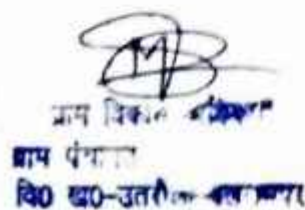 ग्राम विकास अधिकारी
ग्राम पंचायत
वि0 ख0-उतरौला